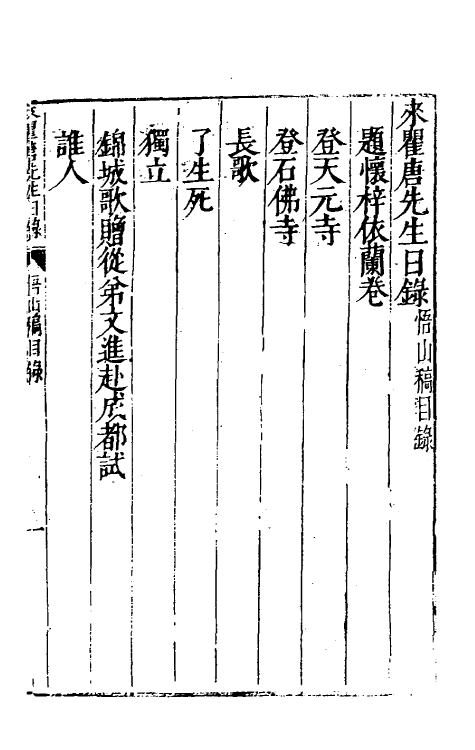 來瞿唐先生日錄 悟山稿目錄
題懷梓依蘭卷
登天元寺
登石佛寺
長歌
了生死
獨立
錦城歌贈從弟文進赴成都試
誰人
來瞿唐先生日錄 悟山稿目錄 一